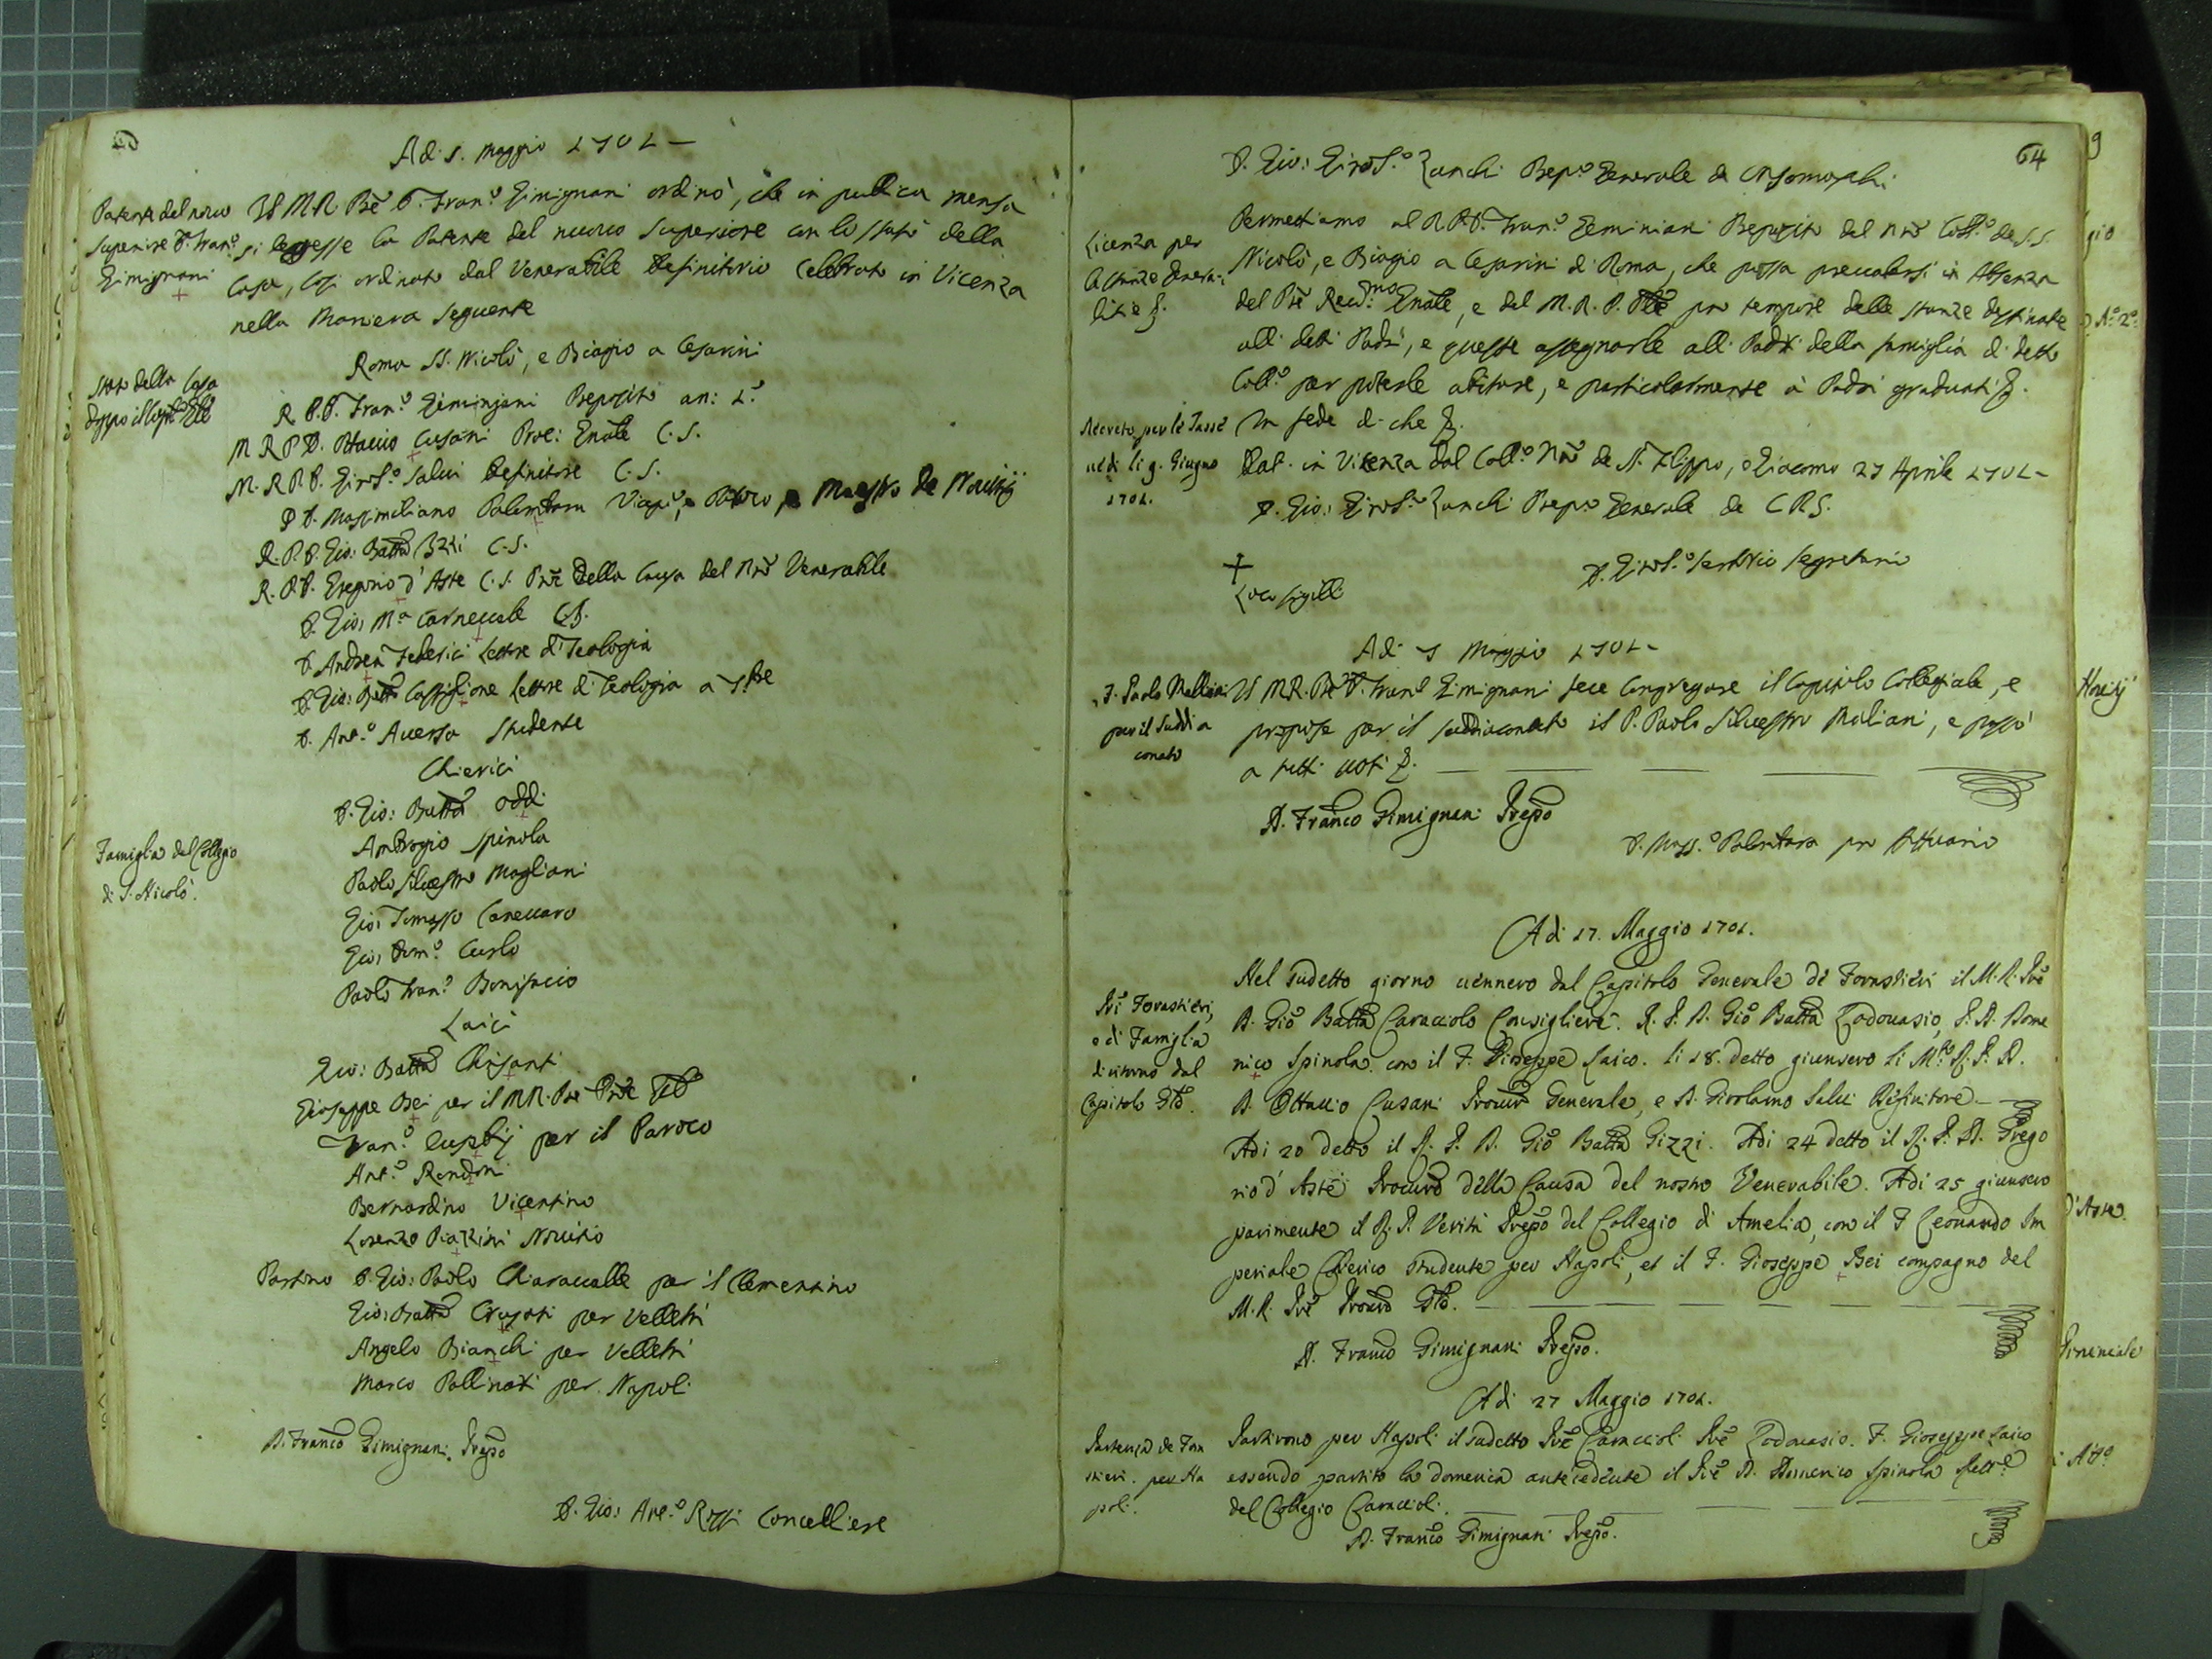 Adi 5. Maggio 1701 –
Patente del novo
Superiore D. Fran.º
Gimignani
Il M.R. Prê D. Fran.º Gimignani ordinò, che in publica mensa
si leggesse la Patente del nuovo Superiore con lo stato della
Casa, così ordinato dal Venerabile Definitorio Celebrato in Vicenza
nella Maniera seguente
Roma SS. Nicolò, e Biagio a Cesarini
Stato della Casa
doppo il Capit.º Gle
R. P. D. Fran.º Gimignani Preposito an: 1.º
M R P D. Ottavio Cusani Proc: Gnale C.S.
M. R. P. D. Girol.º Salvi Definitore C. S.
P D. Massimiliano Palentara Vicepº, e Paroco, e Maestro de Novitij
R. P. D. Gio: Batta Gizzi C. S.
R. P. D. Gregorio d'Aste C. S. Prôre della Causa del Nrô Venerabile
D. Gio: M.a Carnevale C.S.
D. Andrea Federici Lettore di Teologia
D. Gio: Batta Castiglione Lettore di Teologia a
D. Ant.º Aversa Studente
Chierici
D. Gio: Batta Oddi
Ambrogio Spinola
Paolo Silvestro Magliani
Famiglia del Collegio
di S. Nicolò.
Gio: Tomasso Canevaro
Gio: Dom.º Curlo
Paolo Fran.º Bonifacio
Laici
Gio: Batta Chrisanti
Gioseppe Bei per il M.R. Prê Prôre Gle
Fran.º per il Paroco
Ant.º Rondoni
Bernardino Vicentino
Lorenzo Piazzini Novitio
Partino D. Gio: Paolo Chiaravalle per il Clementino
Gio: Batta Crugoti per Velletri
Angelo Bianchi per Velletri
Marco Pallinati per Napoli
D. Franco Gimignani Prepo
D. Gio: Ant.º Rossi Cancelliere
64
D. Gio: Girol.º Zanchi Prep.º Generale de Ch. Somaschi
Licenza per
le stanze Genera-
litie &.
Permettiamo al R.P.D. Fran.º Geminiani Preposito del nrô Coll.º de S.S.
Nicolò, e Biagio a Cesarini di Roma, che possa prevalersi in Absenza
del Prê Rev.mo Gnale, e del M. R. P. Prôre pro tempore delle stanze destinate
alli detti Padri, e queste assegnarle alli Padri della famiglia di detto
Coll.º per poterle abitare, e particolarmente à Padri graduati &.
In fede di che &.
Decreto per le Tasse
vedi li 9. Giugno
1701.
Dat. in Vicenza dal Coll.º Nrô de SS. Filippo, e Giacomo 27 Aprile 1701 –
D. Gio: Girol.º Zanchi Prep.º Generale de C R S.
+
Loco sigilli
D. Girol.º Segretario
Adi 5 Maggio 1701 –
F. Paolo Malliani
per il Suddia
conato
Il M.R. Prê D. Fran.º Gimignani fece congregare il Capitolo Collegiale, e
propose per il suddiaconato il P. Paolo Silvestro Maliani, e passò
a tutti voti &.
D. Franco Gimignani Prepo
D. Mass.º Palentara pro Attuario
Adi 17. Maggio 1701.
Pri Forastieri,
e di Famiglia
di ritorno dal
Capitolo Gle.
Nel sudetto giorno vennero dal Capitolo Generale de Forastieri il M. R. Prê
D. Gio Batta Caracciolo Consigliere. R. P. D. Gio Batta Lodovasio, P. D. Dome
nico Spinola con il F. Gioseppe Laico. li 18. detto giunsero li M.to R. P. D.
D. Ottavio Cusani Procure Generale, e D. Girolamo Salvi Difinitore –
Adi 20 detto il R. P. D. Gio Batta Gizzi. Adi 24 detto il R. P. D. Grego
rio d'Aste Procure della Causa del nostro Venerabile. Adi 25 giunsero
parimente il R. P. Veriti Prepo del Collegio di Amelia, con il F Leonardo Im
periale Chierico studente per Napoli, et il F. Gioseppe Bei compagno del
M. R. Prê Procure Gle.
D. Franco Gimignani Prepo.
Adi 27 Maggio 1701.
Partenza de Fora
stieri. per Na
poli.
Partirono per Napoli il sudetto Prê Caraccioli Prê Lodovasio. F. Gioseppe Laico
essendo partito la domenica antecedente il Prê D. Domenico Spinola Rett.e
del Collegio Caraccioli.
D. Franco Gimignani Prepo.